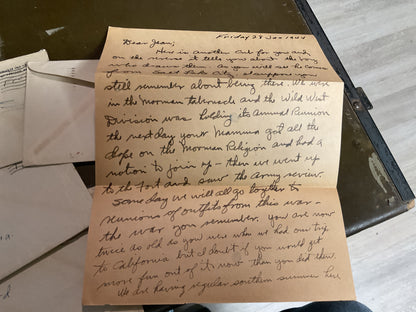 Friday 28 Jan 1944
Dear Jean;
Here is another one for you and
on the reverse it tells you about the boy
who drew them. As you will see he comes
from Salt Lake City. I suppose you
still remember about being there. We were
in the Mormon tabernacle and the Wild West
Division was holding its Annual Reunion
the next day your Mamma got all the
dope on the Mormon Religion and had a
notion to join up - then we went up
to the Fort and saw the Army review
Some day we will all go together to
reunions of outfits from this war -
the war you remember. You are now
twice as old as you were when we had our trip
to California but I doubt if you would get
more fun out of it now than you did then.
We are having regular southern summer here